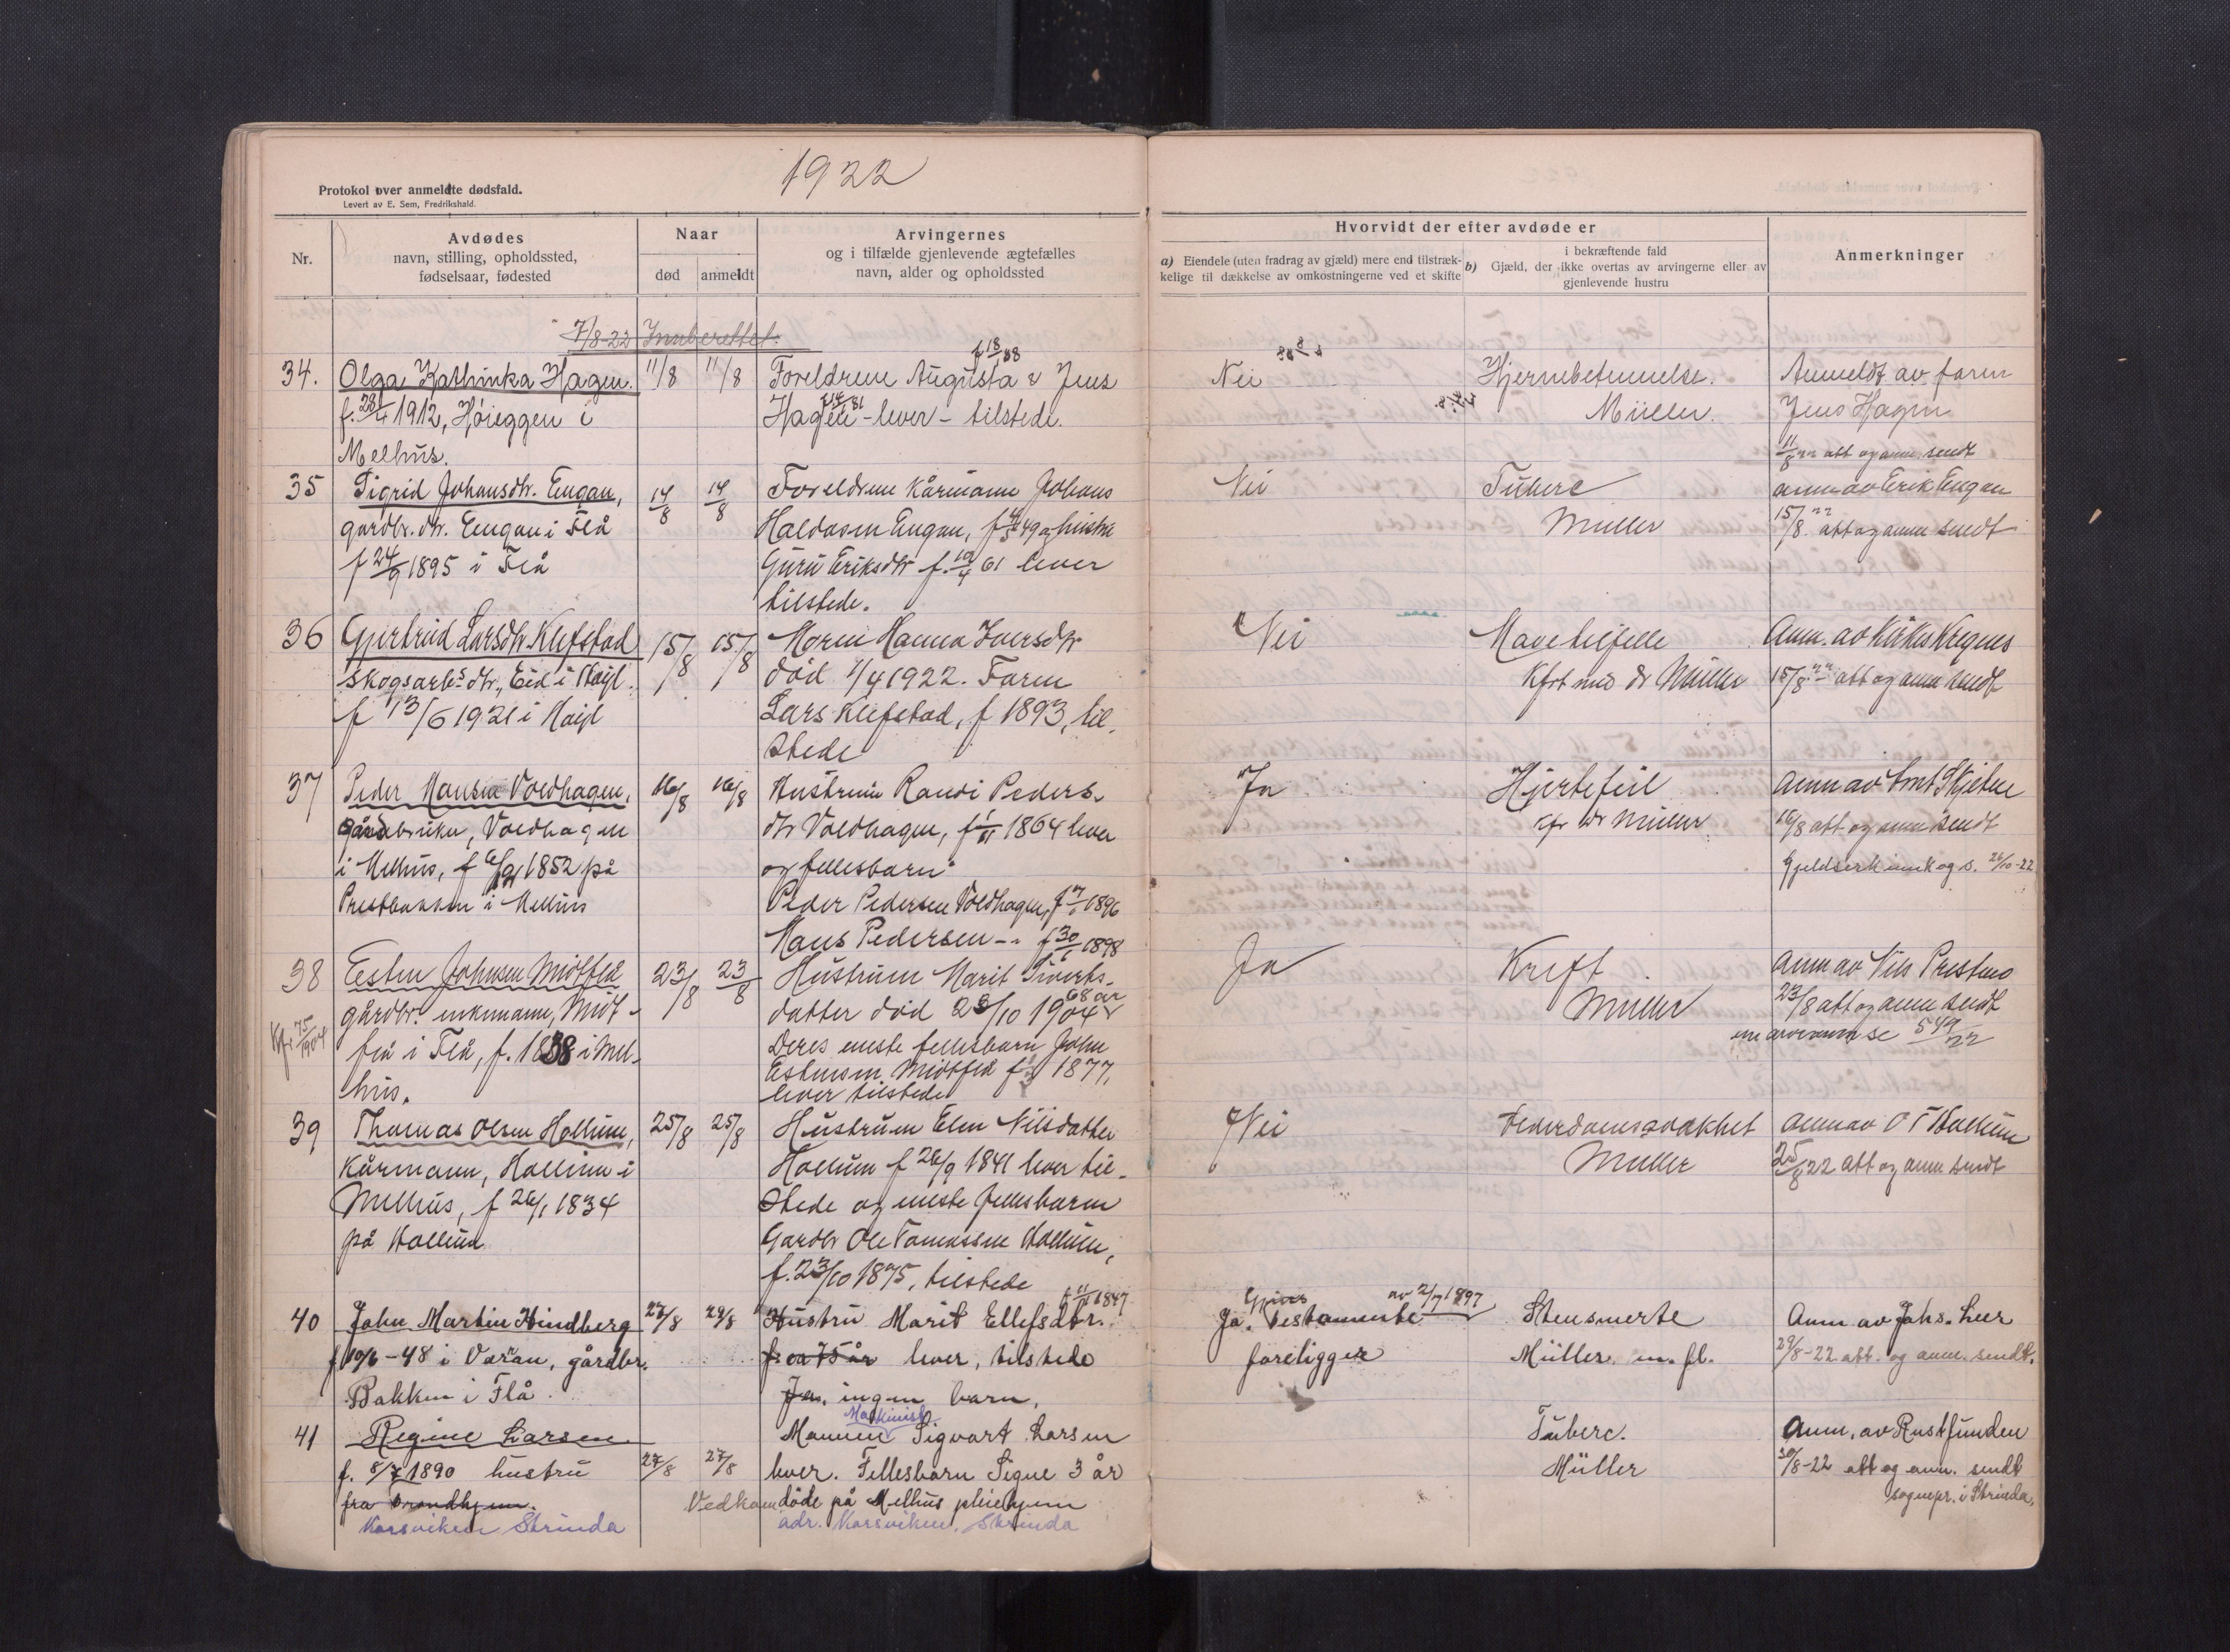 1922
Protokol over anmeldte dødsfald.
Levert av E. Sem, Fredrikshald.
Nr.
Avdødes
navn, stilling, opholdssted,
fødselsaar, fødested
Naar
død
anmeldt
Arvingernes
og i tilfælde gjenlevende ægtefælles
navn, alder og opholdssted
Hvorvidt der efter avdøde er
a) Eiendele (uten fradrag av gjæld) mere end tilstræk-
kelige til dækkelse av omkostningerne ved et skifte
i bekræftende fald
b) Gjæld, der ikke overtas av arvingerne eller av
gjenlevende hustru
Anmerkninger
7/8-22 Innberettet.
34.
Olga Kathinka Hagen.
f. 28/4 1912, Høieggen i
Melhus.
11/8
11/8
f 18/1 88
Foreldrene Augusta & Jens
Hagen - lever - tilstede.
Nei
Hjernebetennelse.
Müller.
Anmeldt av faren
Jens Hagen
11/8 22 att og anm. sendt
35
Sigrid Johansdtr. Engan,
gardbr. dtr. Engan i Flå
f 24/9 1895 i Flå
14/8
14/8
Foreldrene kårmann Johans
Haldosen Engan, f 4/5 49 og hustru
Guru Eriksdtr f. 10/4 61 lever
tilstede.
Nei
Tuberc
Müller
anm av Erik Engan
15/8 22 att og anm sendt
36
Gjertrud Larsdtr Klefstad
skogsarb.s dtr., Eid i Høil.
f 13/6 1921 i Høil
15/8
15/8
Moren Hanna Iversdtr
død 1/4 1922. Faren
Lars Klefstad, f 1893, til-
stede
Nei
Mavetilfelle
Kfrt med dr Müller
Anm. av Kirkes. Kregnes
15/8 22 att og anm sendt
37
Peder Hansen Voldhagen,
gårdbruker, Voldhagen
i Melhus, f 1852 på
Prestbakken i Melhus
16/8
16/8
Hustruen Randi Peders-
dtr Voldhagen, f 1864 lever
og fellesbarn:
Peder Pedersen Voldhagen, f 1896
Hans Pedersen -"- f 30/1 1898
Ja
Hjertefeil
kfr dr Müller
Anm av lmt Skjetne
16/8 att og anm sendt
26/10-22
38
Kfr 75/1904
Esten Johnsen Midtflå
gårdbr. enkemann, Midt-
flå i Flå, f. 1838 i Mel-
hus.
23/8
23/8
Hustruen Marit Siverts-
datter død 23/10 1904 68 år
Deres eneste fellesbarn John
Estensen Midtflå f 1877,
lever tilstede
Ja
Kreft
Müller
Anm av Nils Prestmo
23/8 att og anm sendt
549/22
39
Thomas Olsen Hollum,
kårmann, Hollum i
Melhus, f 26/1 1834
på Hollum
25/8
25/8
Hustruen Elen Nilsdatter
Hollum f 26/9 1841 lever til-
stede og eneste fellesbarn
Gardbr Ole Tomassen Hollum,
f. 23/10 1875, tilstede
Nei
Alderdomssvakhet
Müller
anm av O T Hollum
25/8 22 att og anm sendt
40
John Martin Hindberg
f 10/6-48 i Vøran, gårdbr.
Bakken i Flå.
27/8
29/8
f 11/11 1847
Hustru Marit Ellefsdtr.
f. ca 75 år lever, tilstede
Jen. ingen barn.
Gjens. av 2/7 1897
Ja. testamente
foreligger
Stensmerte
Müller m. fl.
Anm av Johs. Leer
29/8-22 att. og anm. sendt.
41
Regine Larsen
f. 8/7 1890 hustru
fra Trondhjem.
Korsviken Strinda
27/8
27/8
Maskinist
Mannen Sigvart Larsen
lever. Fellesbarn Signe 3 år
Vedkom døde på Melhus pleiehjem
adr. Korsviken, Strinda
Tuberc.
Müller
Anm. av Rustfunden
30/8-22 att og anm. sendt
sognepr. i Strinda.